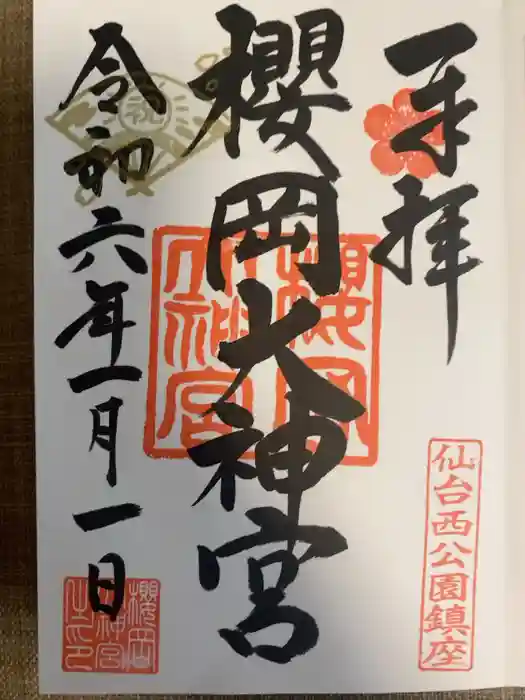 奉拝
櫻岡大神宮
仙台西公園鎮座
令和六年一月一日
櫻岡大神宮
祝